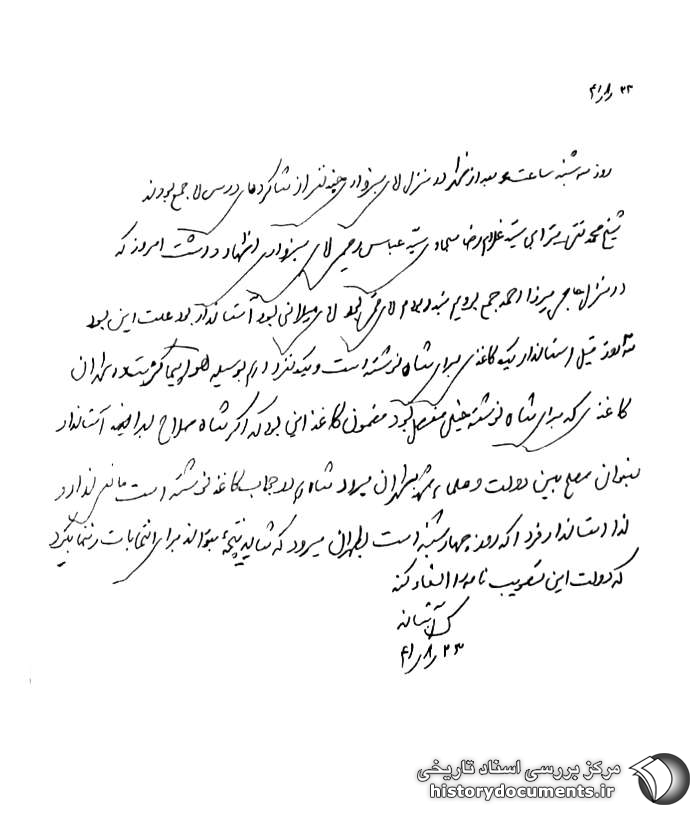 ۲۳ر۸ر۴۱
روز سه شنبه ساعت ۶ بعد از ظهر در منزل آقای سبزواری چند نفر از شاگردهای درس آقا جمع بودند
شیخ محمد تقی سید غلامرضا سید عباس آقای سبزواری اظهار داشت امروز که
در منزل حاجی میرزا احمد جمع بودیم آقای قمی بود آقای میلانی بود استاندار بود علت این بود
قبل استاندار یک کاغذی برای شاه نوشته است و یک نفر بوسیله هواپیما تهران
کاغذی که برای شاه نوشته خیلی مفصل بود مضمون کاغذ این بود که اگر شاه صلاح استاندار
بعنوان صلح بین دولت و علماء بتهران برود شاه در جواب کاغذ نوشته است مانعی ندارد
لذا استاندار فردا که روز چهارشنبه است بطهران میرود که شاید نتیجه بتواند برای انتخابات بگیرد
که دولت این تصویب نامه را الغاء کند
۲۳ر۸ر۴۱
مرکز بررسی اسناد تاریخی
historydocuments.ir